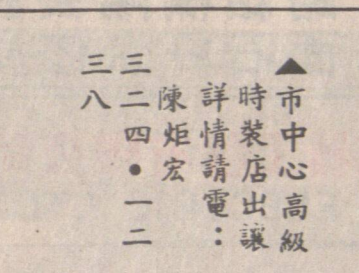 ▲市中心高級
時裝店出讓
詳情請電：
陳炬宏
三二四•一二
三八